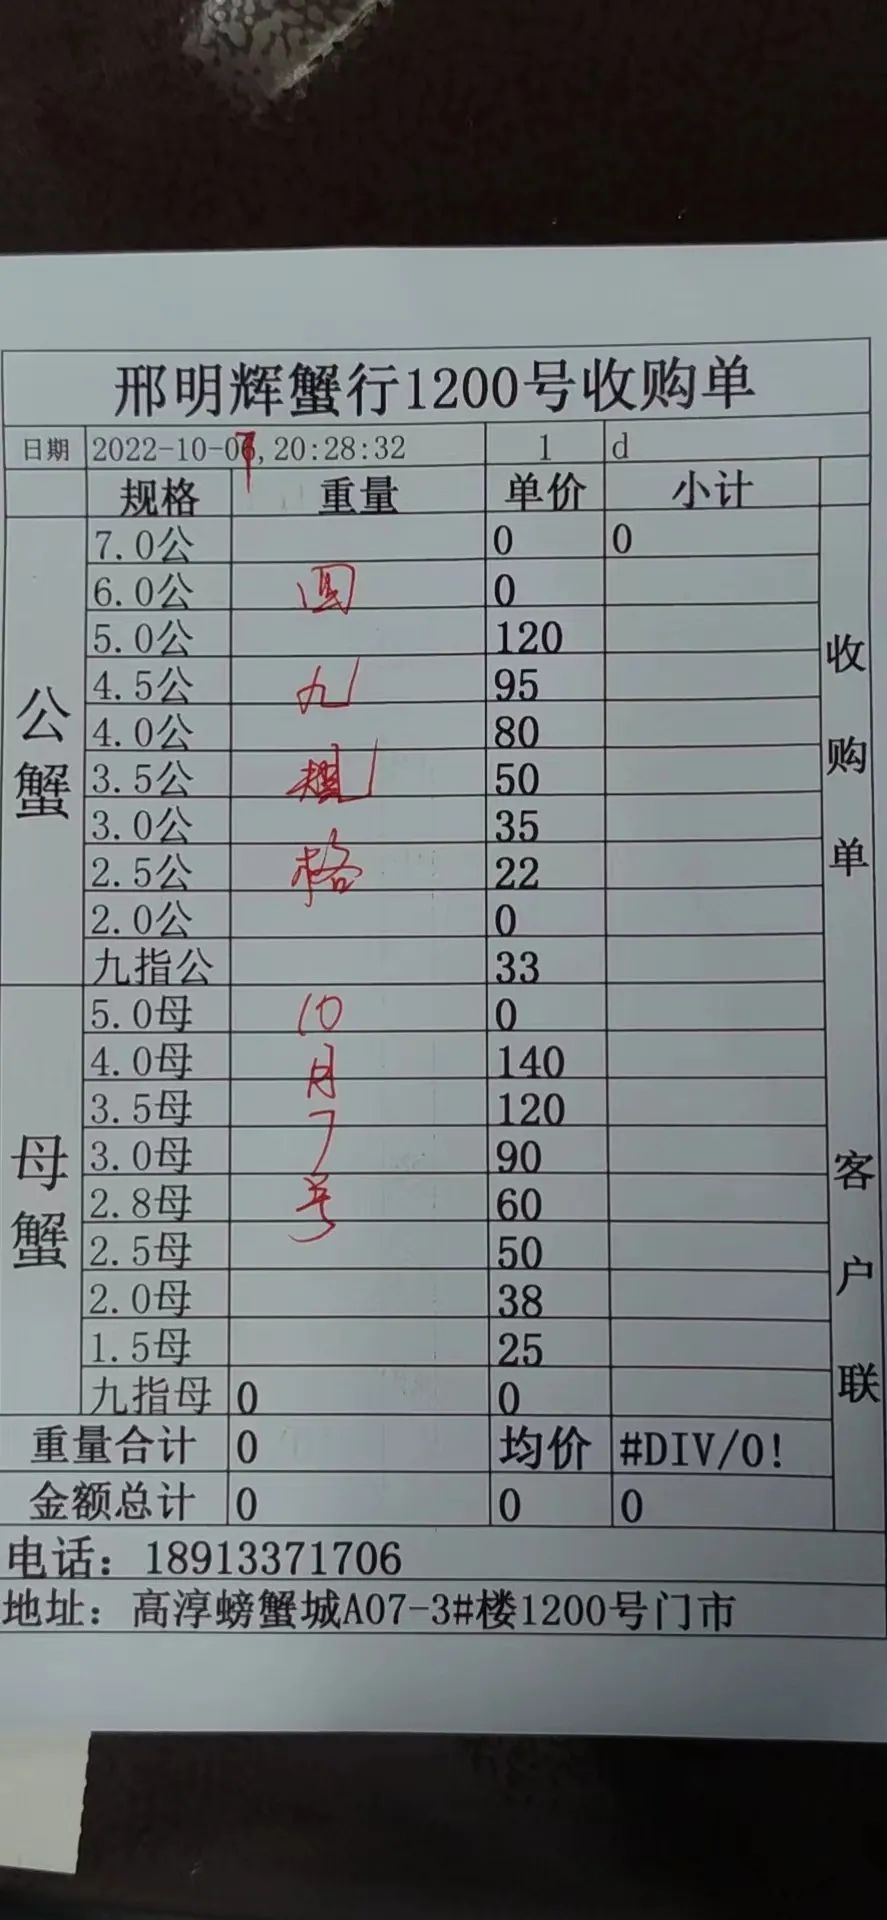 邢明辉蟹行1200号收购单
日期 2022-10-07,20:28:32 1 d
规格 重量 单价 小计
公蟹
7.0公 0 0
6.0公 0
5.0公 120
4.5公 95
4.0公 80
3.5公 50
3.0公 35
2.5公 22
2.0公 0
九指公 33
母蟹
5.0母 0
4.0母 140
3.5母 120
3.0母 90
2.8母 60
2.5母 50
2.0母 38
1.5母 25
九指母 0 0
重量合计 0 均价 #DIV/0!
金额总计 0 0 0
电话：18913371706
地址：高淳螃蟹城A07-3#楼1200号门市
九
规
格
10
月
7
号
收购单
客户联